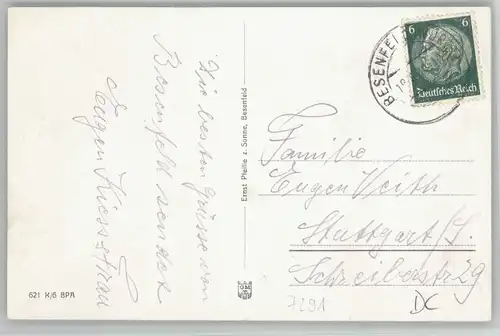 Die besten Grüsse von
Besenfeld sendet
Eugen Kiess u. Frau
621 K/6 BPA
Ernst Pfeifle z. Sonne, Besenfeld
BESENFEL
6 6
Deutsches Reich
Familie
Eugen Veith
Stuttgart/S.
Schreiberstr 29
7291
DC